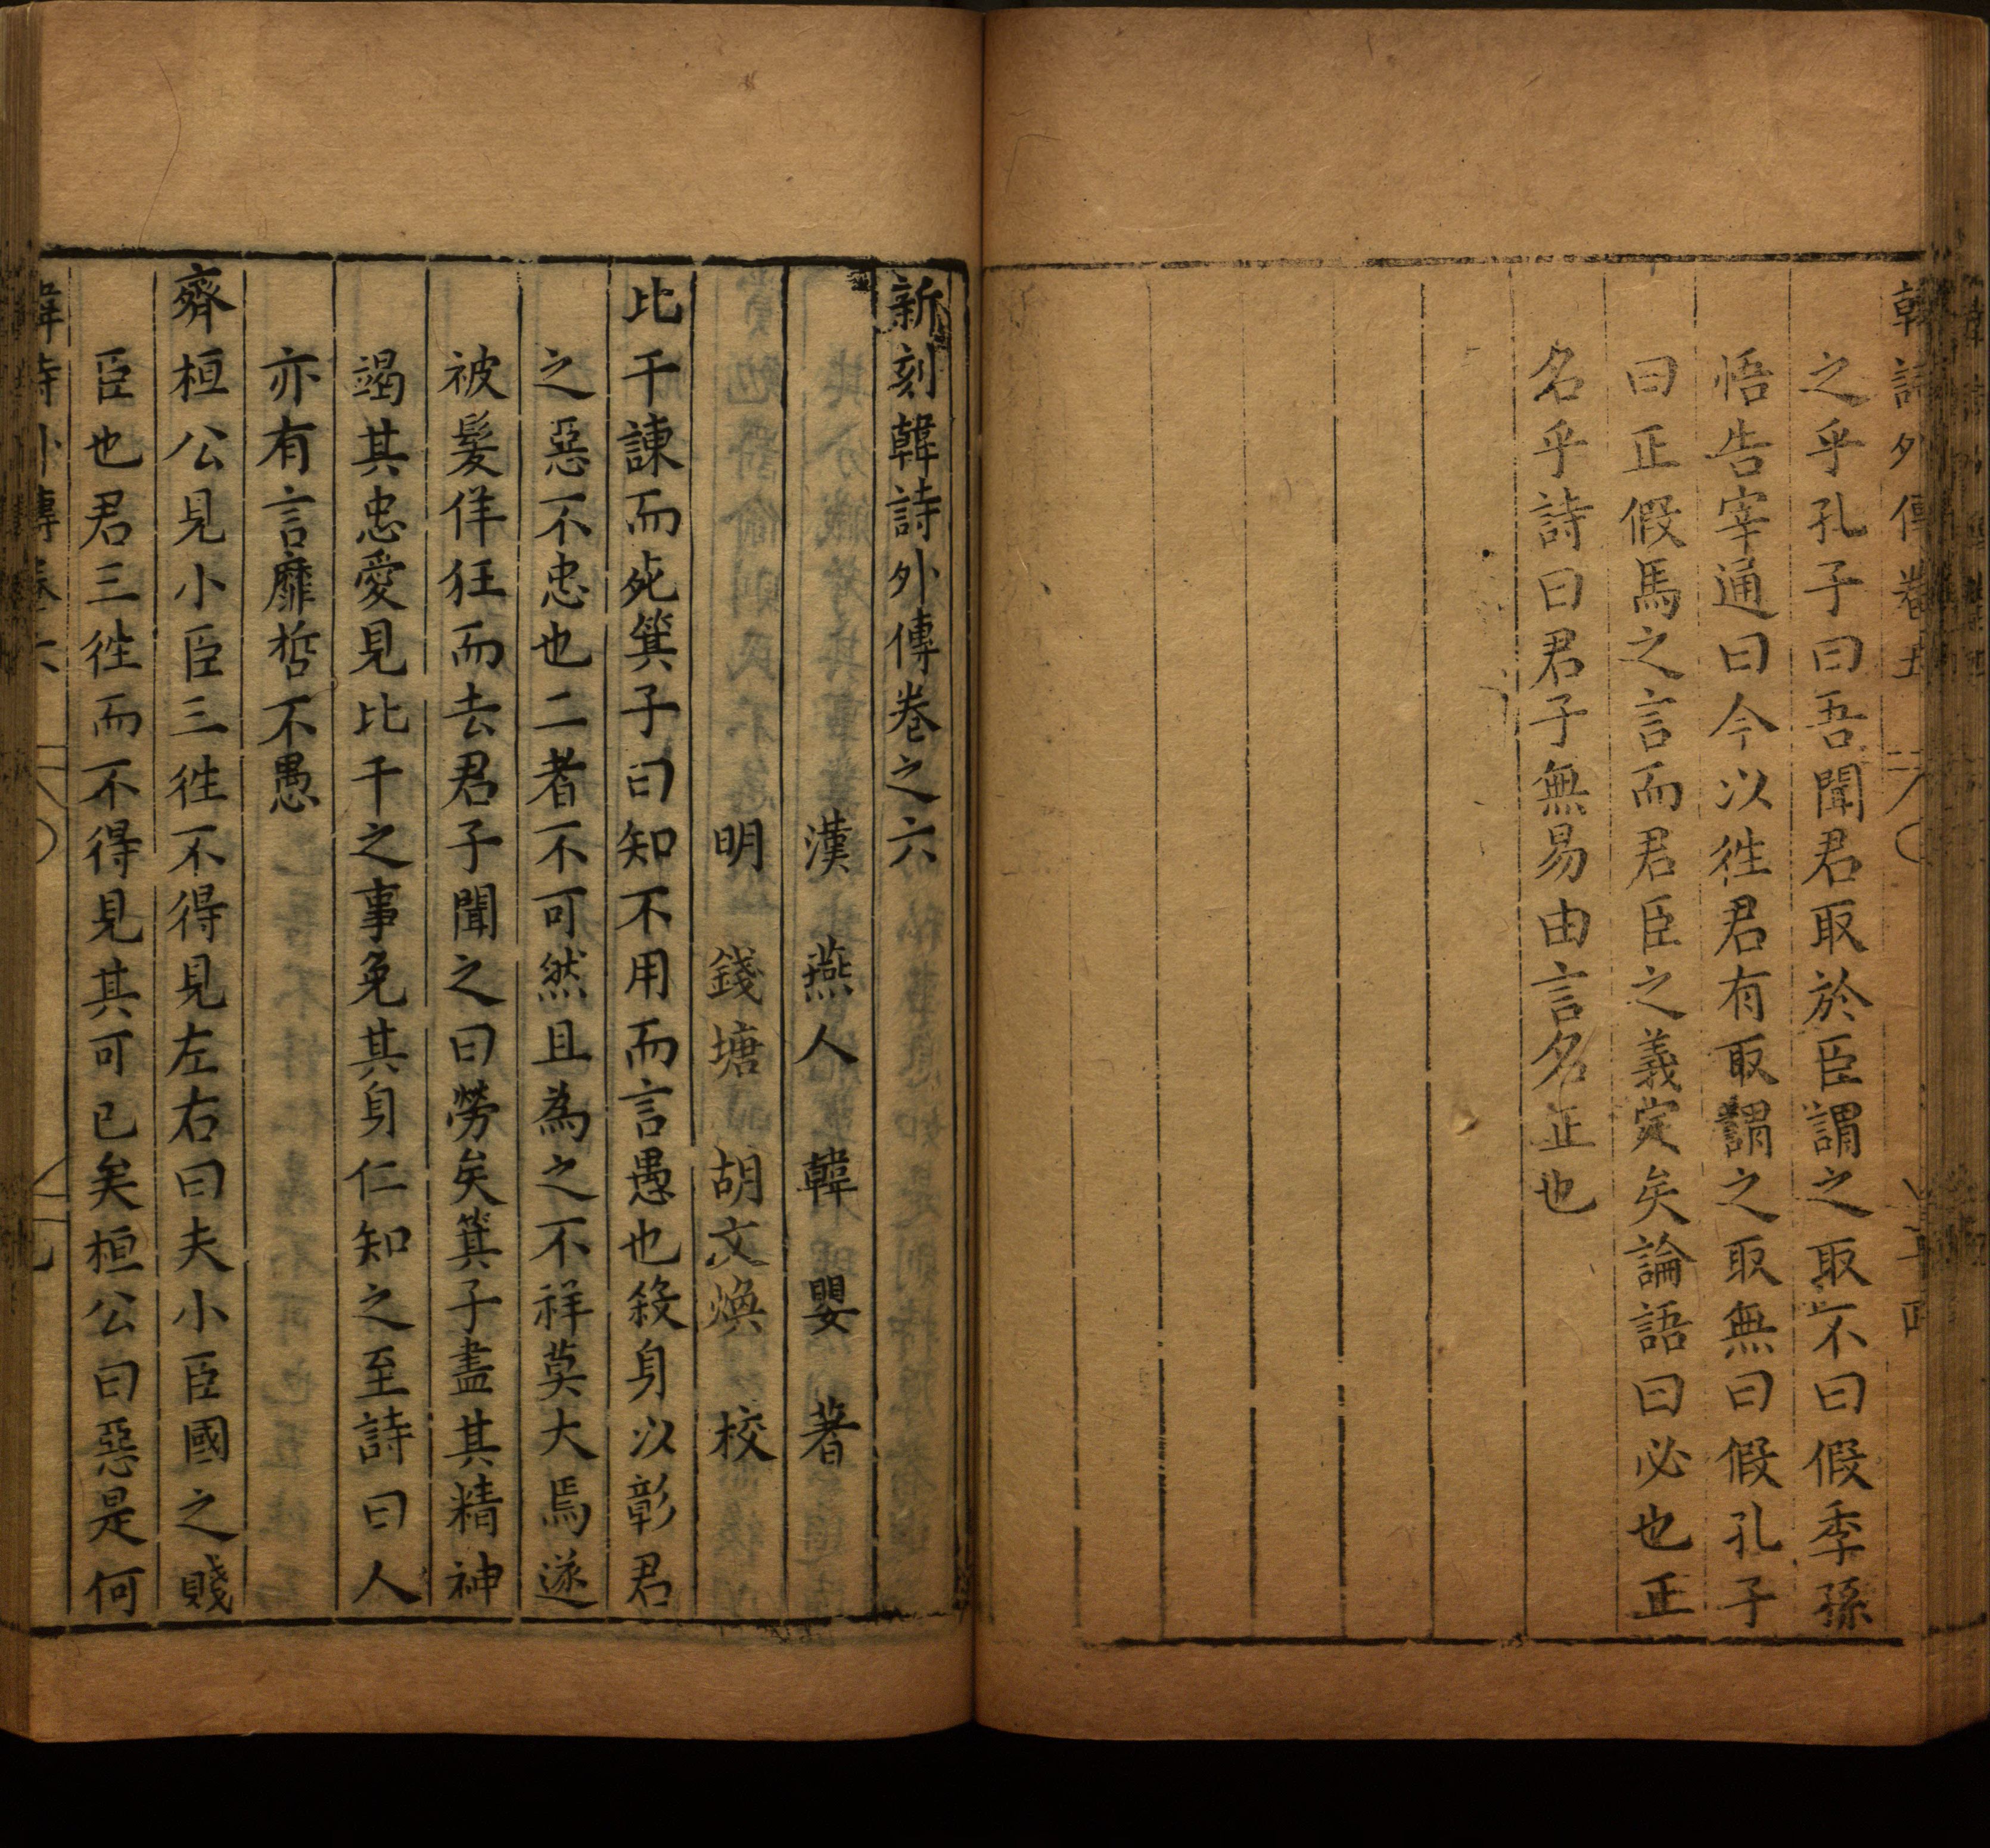 韓詩外傳卷五
之乎孔子曰吾聞君取於臣謂之取不曰假季孫
悟告宰通曰今以徃君有取謂之取無曰假孔子
曰正假馬之言而君臣之義定矣論語曰必也正
名乎詩曰君子無易由言名正也
新刻韓詩外傳卷之六
漢 燕人 韓嬰 著
明 錢塘 胡文煥 校
比干諫而死箕子曰知不用而言愚也殺身以彰君
之惡不忠也二者不可然且為之不祥莫大焉遂
被髮佯狂而去君子聞之曰勞矣箕子盡其精神
竭其忠愛見比干之事免其身仁知之至詩曰人
亦有言靡哲不愚
齊桓公見小臣三徃不得見左右曰夫小臣國之賤
臣也君三徃而不得見其可已矣桓公曰惡是何
韓詩外傳卷六